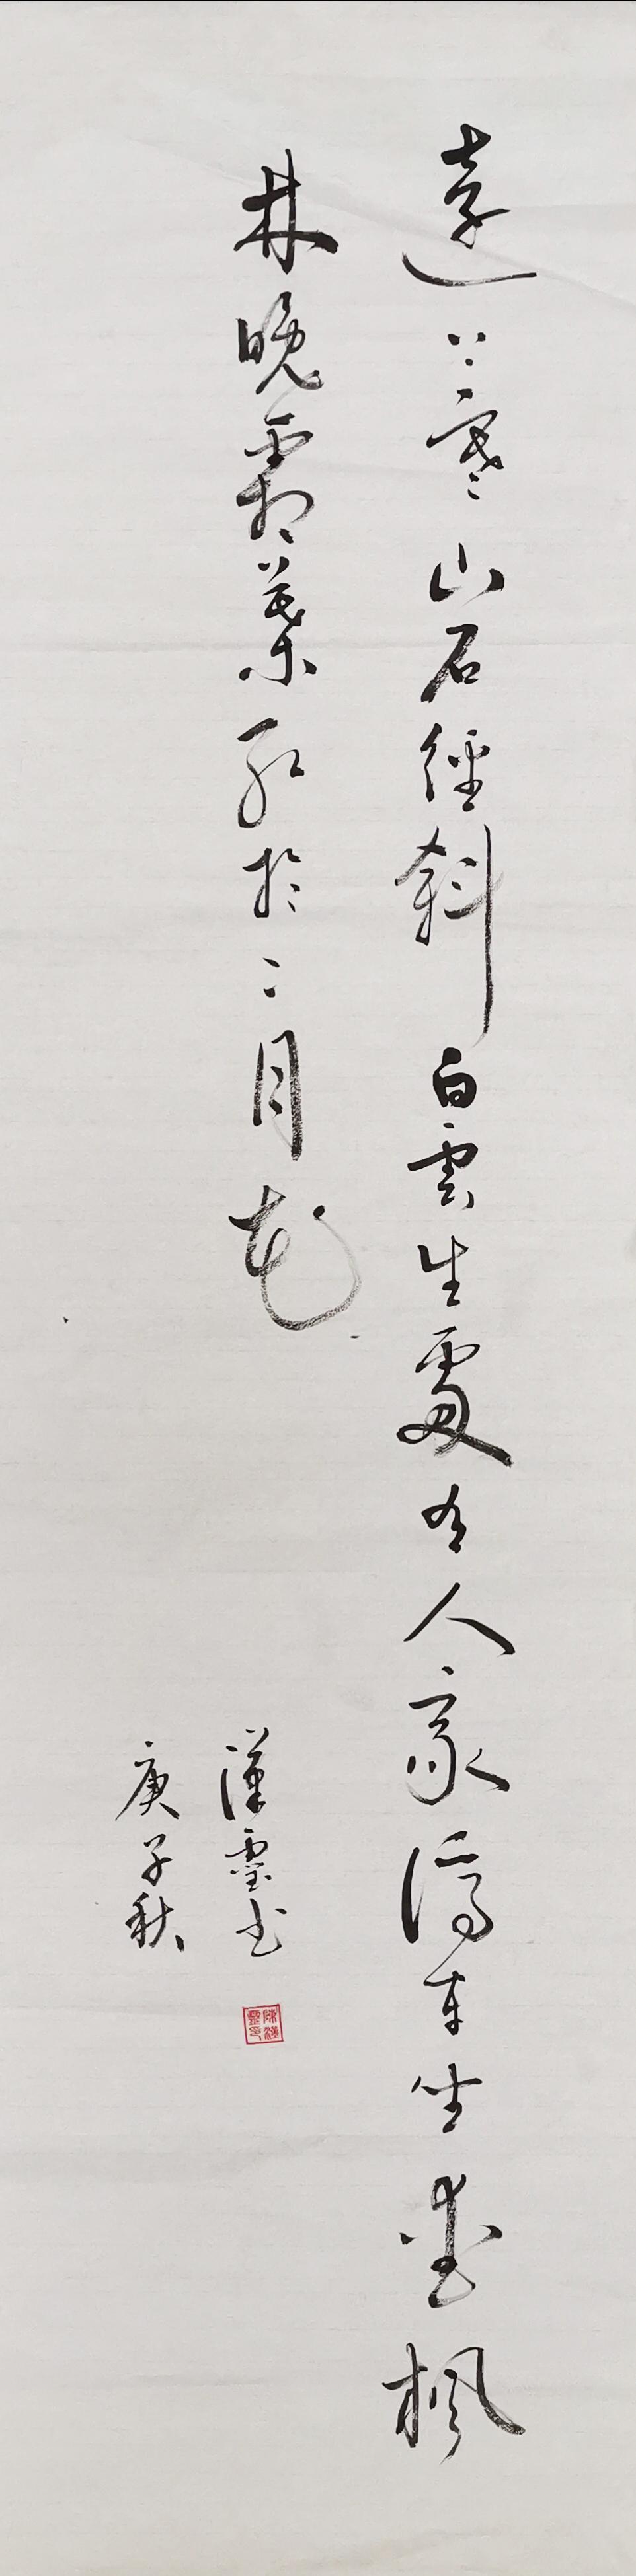 遠上寒山石徑斜白雲生處有人家停車坐愛楓
林晚霜葉紅於二月花
漢靈书
庚子秋